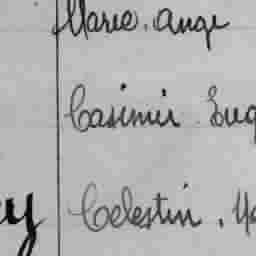 Marie. Ange
Casimir Eug
y Celestin. Ma